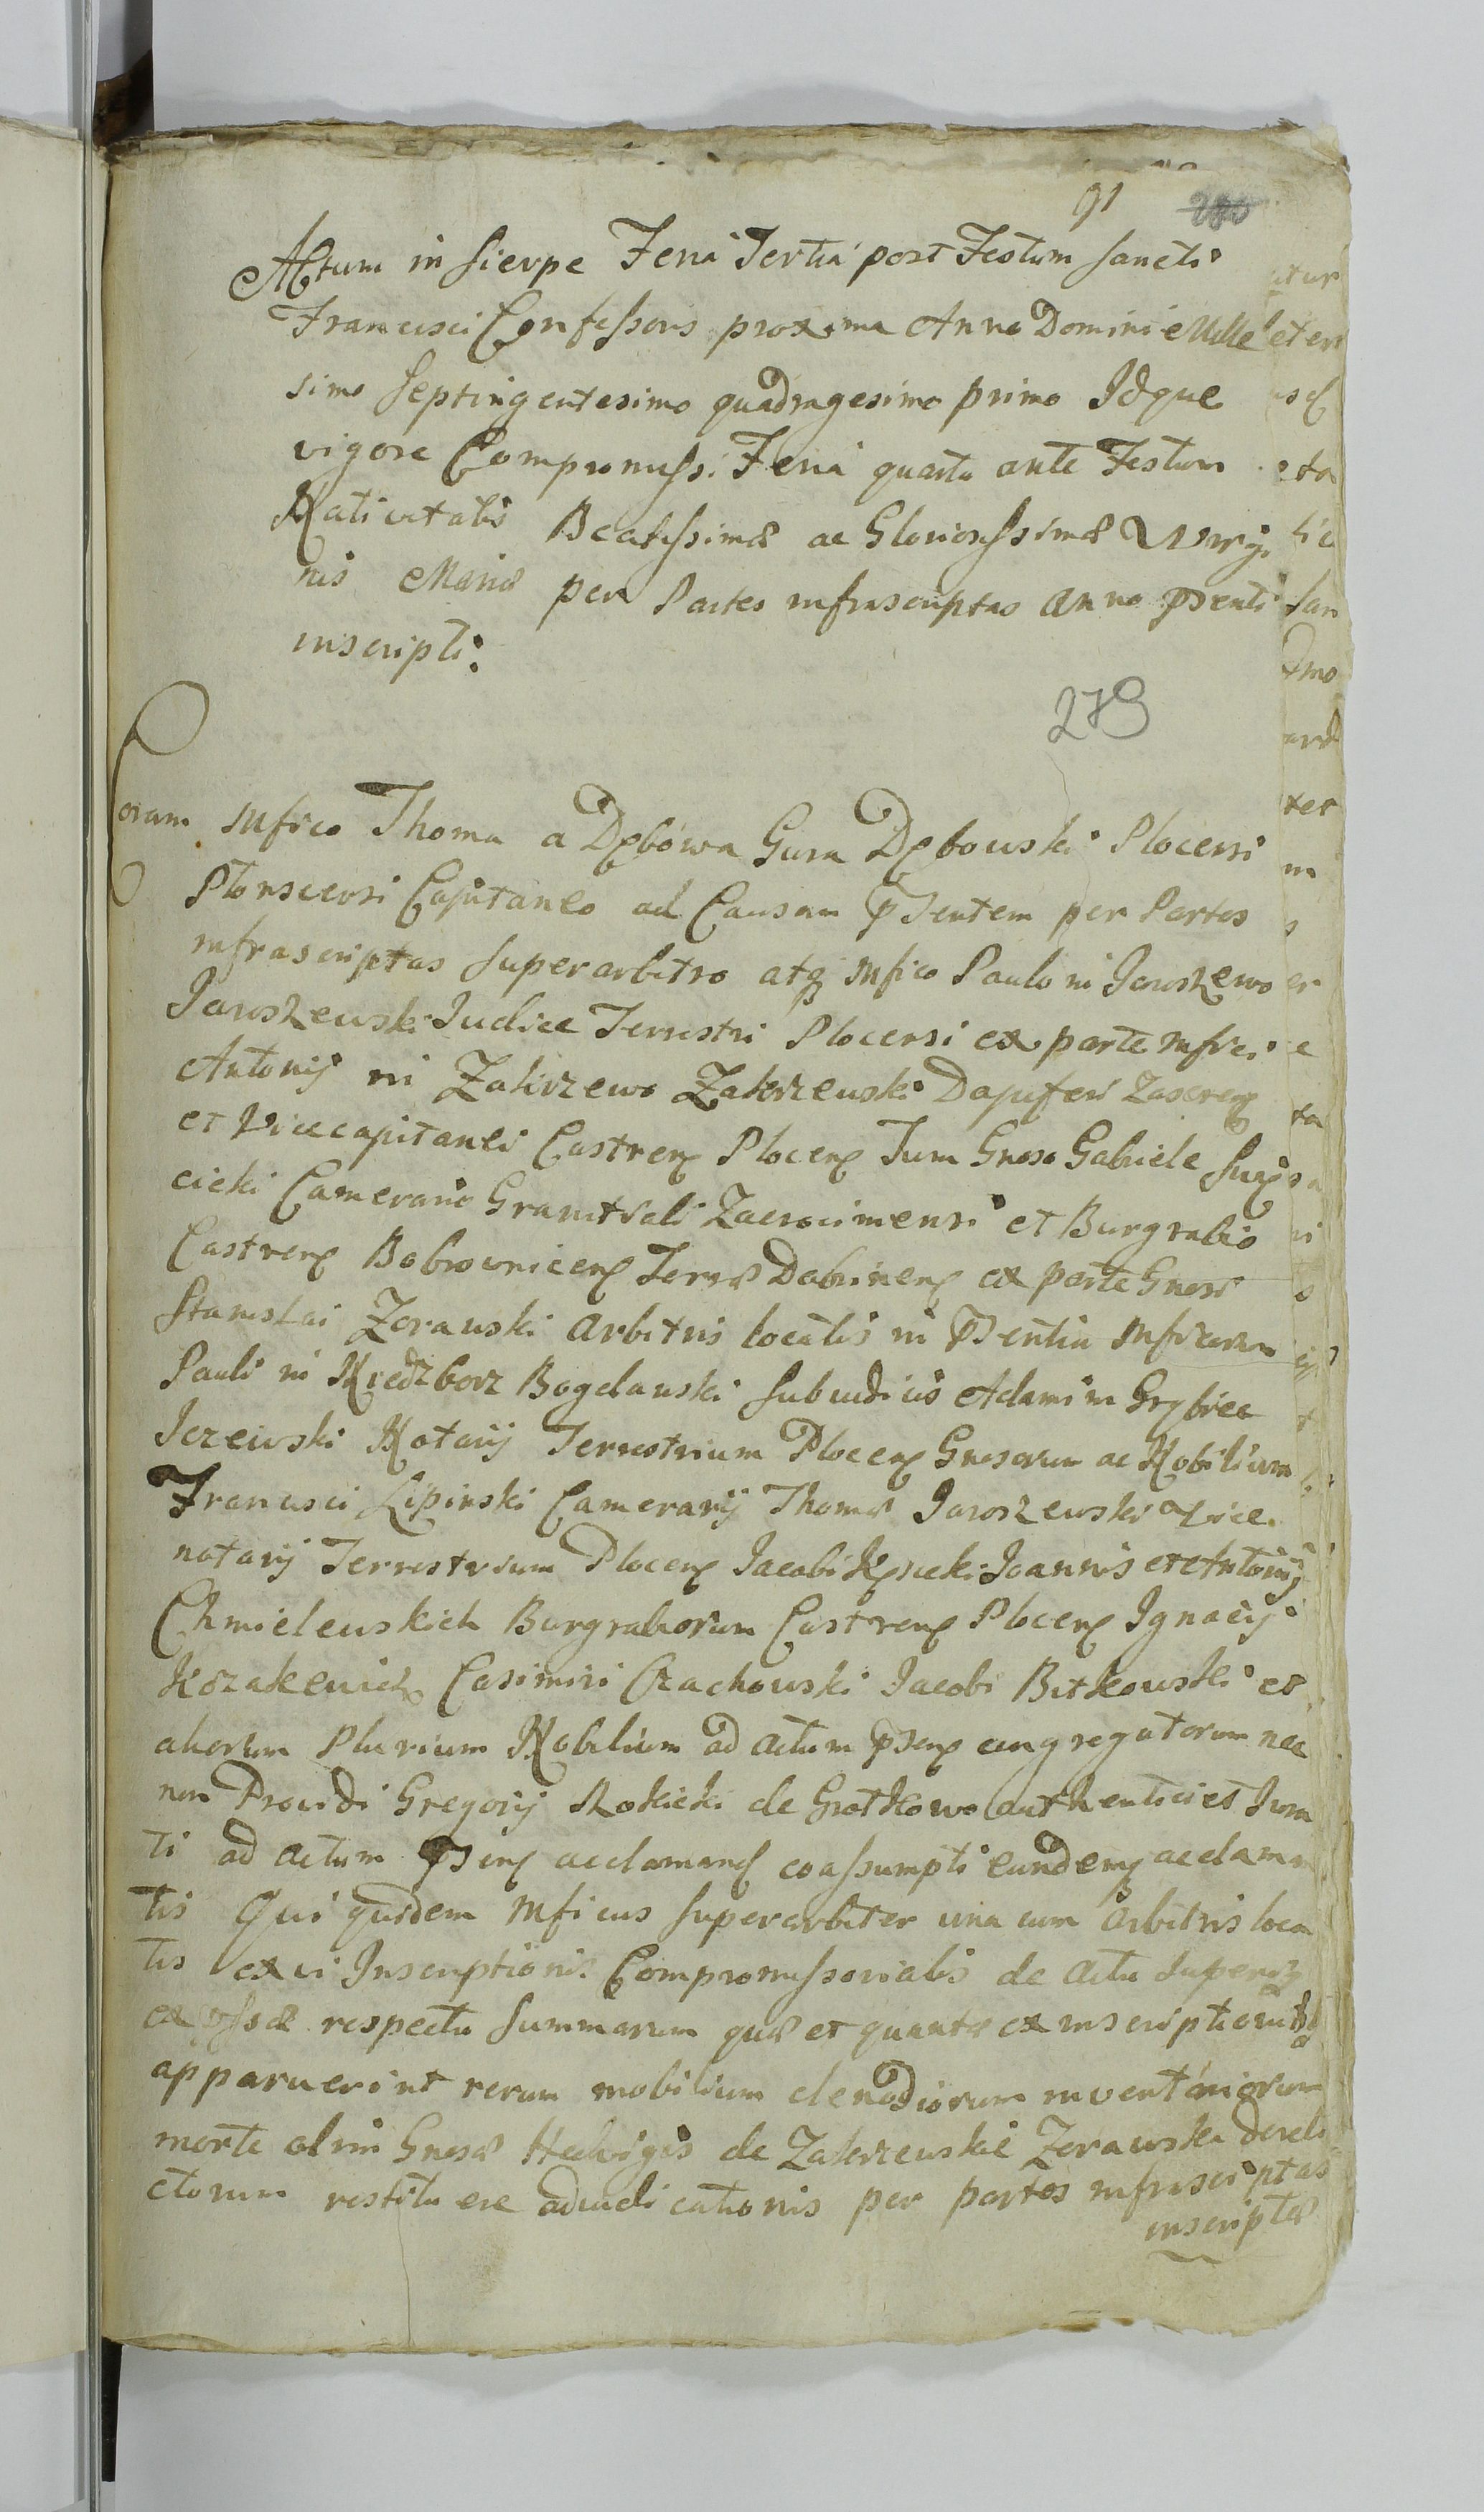 91 280
Actum in Sierpc Feria Tertia post Festum Sancti
Francisci Confessoris proxima Anno Domini Mille
simo Septingentesimo quadragesimo primo Idque
vigore Compromissi Feria quarta ante Festum
Nativitatis Beatissimæ ac Gloriosissimæ Virgi
nis Mariæ per Partes infrascriptas Anno psenti
inscripti.
279
Coram Mfico Thoma a Dębowa Gura Dębowski Plocensi
Plonscensi Capitaneo ad Causam psentem per Partes
infrascriptas Superarbitro atq Mfico Paulo in Jaroszewo
Jaroszewski Judice Terrestri Plocensi ex parte Mfici
Antonij in Zakrzewo Zakrzewski Dapiferi
et Vicecapitanei Castren Plocen Tum Gnoso Gabriele
cicki Camerario Granitiali Zacrocimensi et Burgrabio
Castren Bobrownicen Terræ Dobrinen ex parte Gnosi
Stanislai Zorawski Arbitris locatis in psentia Mficorum
Pauli in Bogdanski Subiudicis Adami in
Jezewski Notarij Terrestrium Plocen Gnosorum ac Nobilium
Francisci Lipinski Camerarij Thomæ Jaroszewski Vice
notarij Terrestrium Plocen Jacobi Kęsicki Joannis et Antonij
Chmielewskich Burgrabiorum Castren Plocen Ignacij
Kozakewich Casimiri Czachowski Jacobi Bitkowski et
aliorum Plurium Nobilium ad actum psen congregatorum nec
non Providi Gregorij Rokicki de authentici et Jura
ti ad actum psens acclamand coassumpti eundemq acclaman
tis Qui quidem Mficus Superarbiter una cum Arbitris loca
tis ex vi Inscriptionis Compromissorialis de actu superiq
respectu Summarum quæ et quantæ ex inscriptionibq
apparuerint rerum mobilium clenodiorum inventariorum
morte olim Gnosæ Hedvigis de Zakrzewskie Zorawska dereli
ctorum restituere adiudicationis per partes infrascriptas
inscriptæ